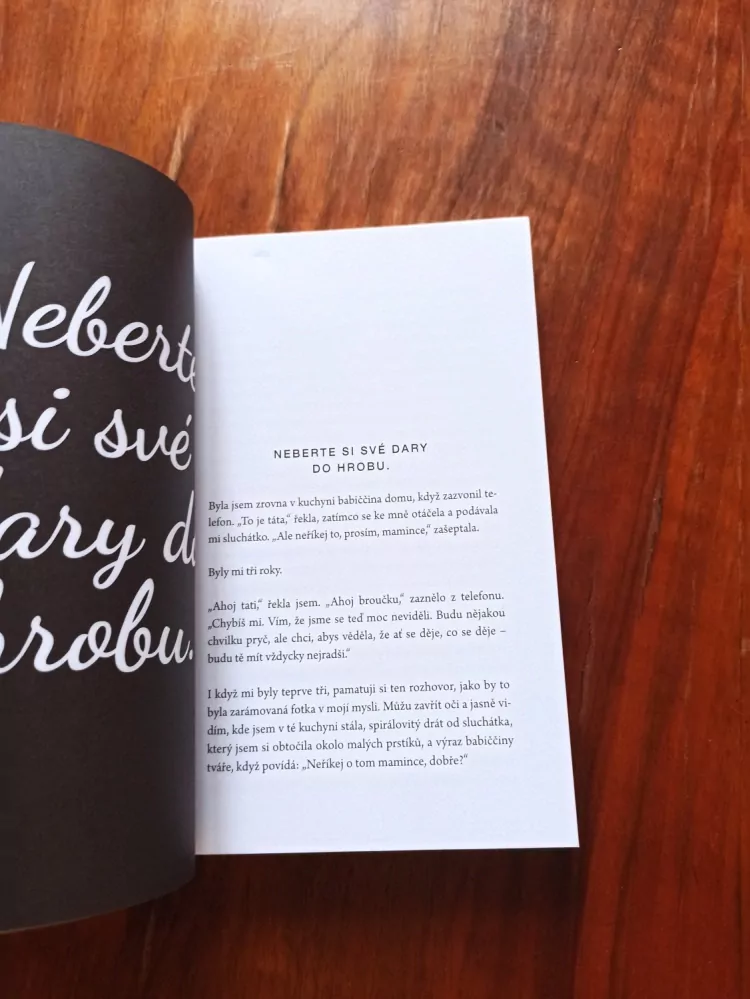 Neberte
si své
dary do
hrobu.
NEBERTE SI SVÉ DARY
DO HROBU.
Byla jsem zrovna v kuchyni babiččina domu, když zazvonil te-
lefon. „To je táta,“ řekla, zatímco se ke mně otáčela a podávala
mi sluchátko. „Ale neříkej to, prosím, mamince,“ zašeptala.
Byly mi tři roky.
„Ahoj tati,“ řekla jsem. „Ahoj broučku,“ zaznělo z telefonu.
„Chybíš mi. Vím, že jsme se teď moc neviděli. Budu nějakou
chvilku pryč, ale chci, abys věděla, že ať se děje, co se děje –
budu tě mít vždycky nejradši.“
I když mi byly teprve tři, pamatuji si ten rozhovor, jako by to
byla zarámovaná fotka v mojí mysli. Můžu zavřít oči a jasně vi-
dím, kde jsem v té kuchyni stála, spirálovitý drát od sluchátka,
který jsem si obtočila okolo malých prstíků, a výraz babiččiny
tváře, když povídá: „Neříkej o tom mamince, dobře?“